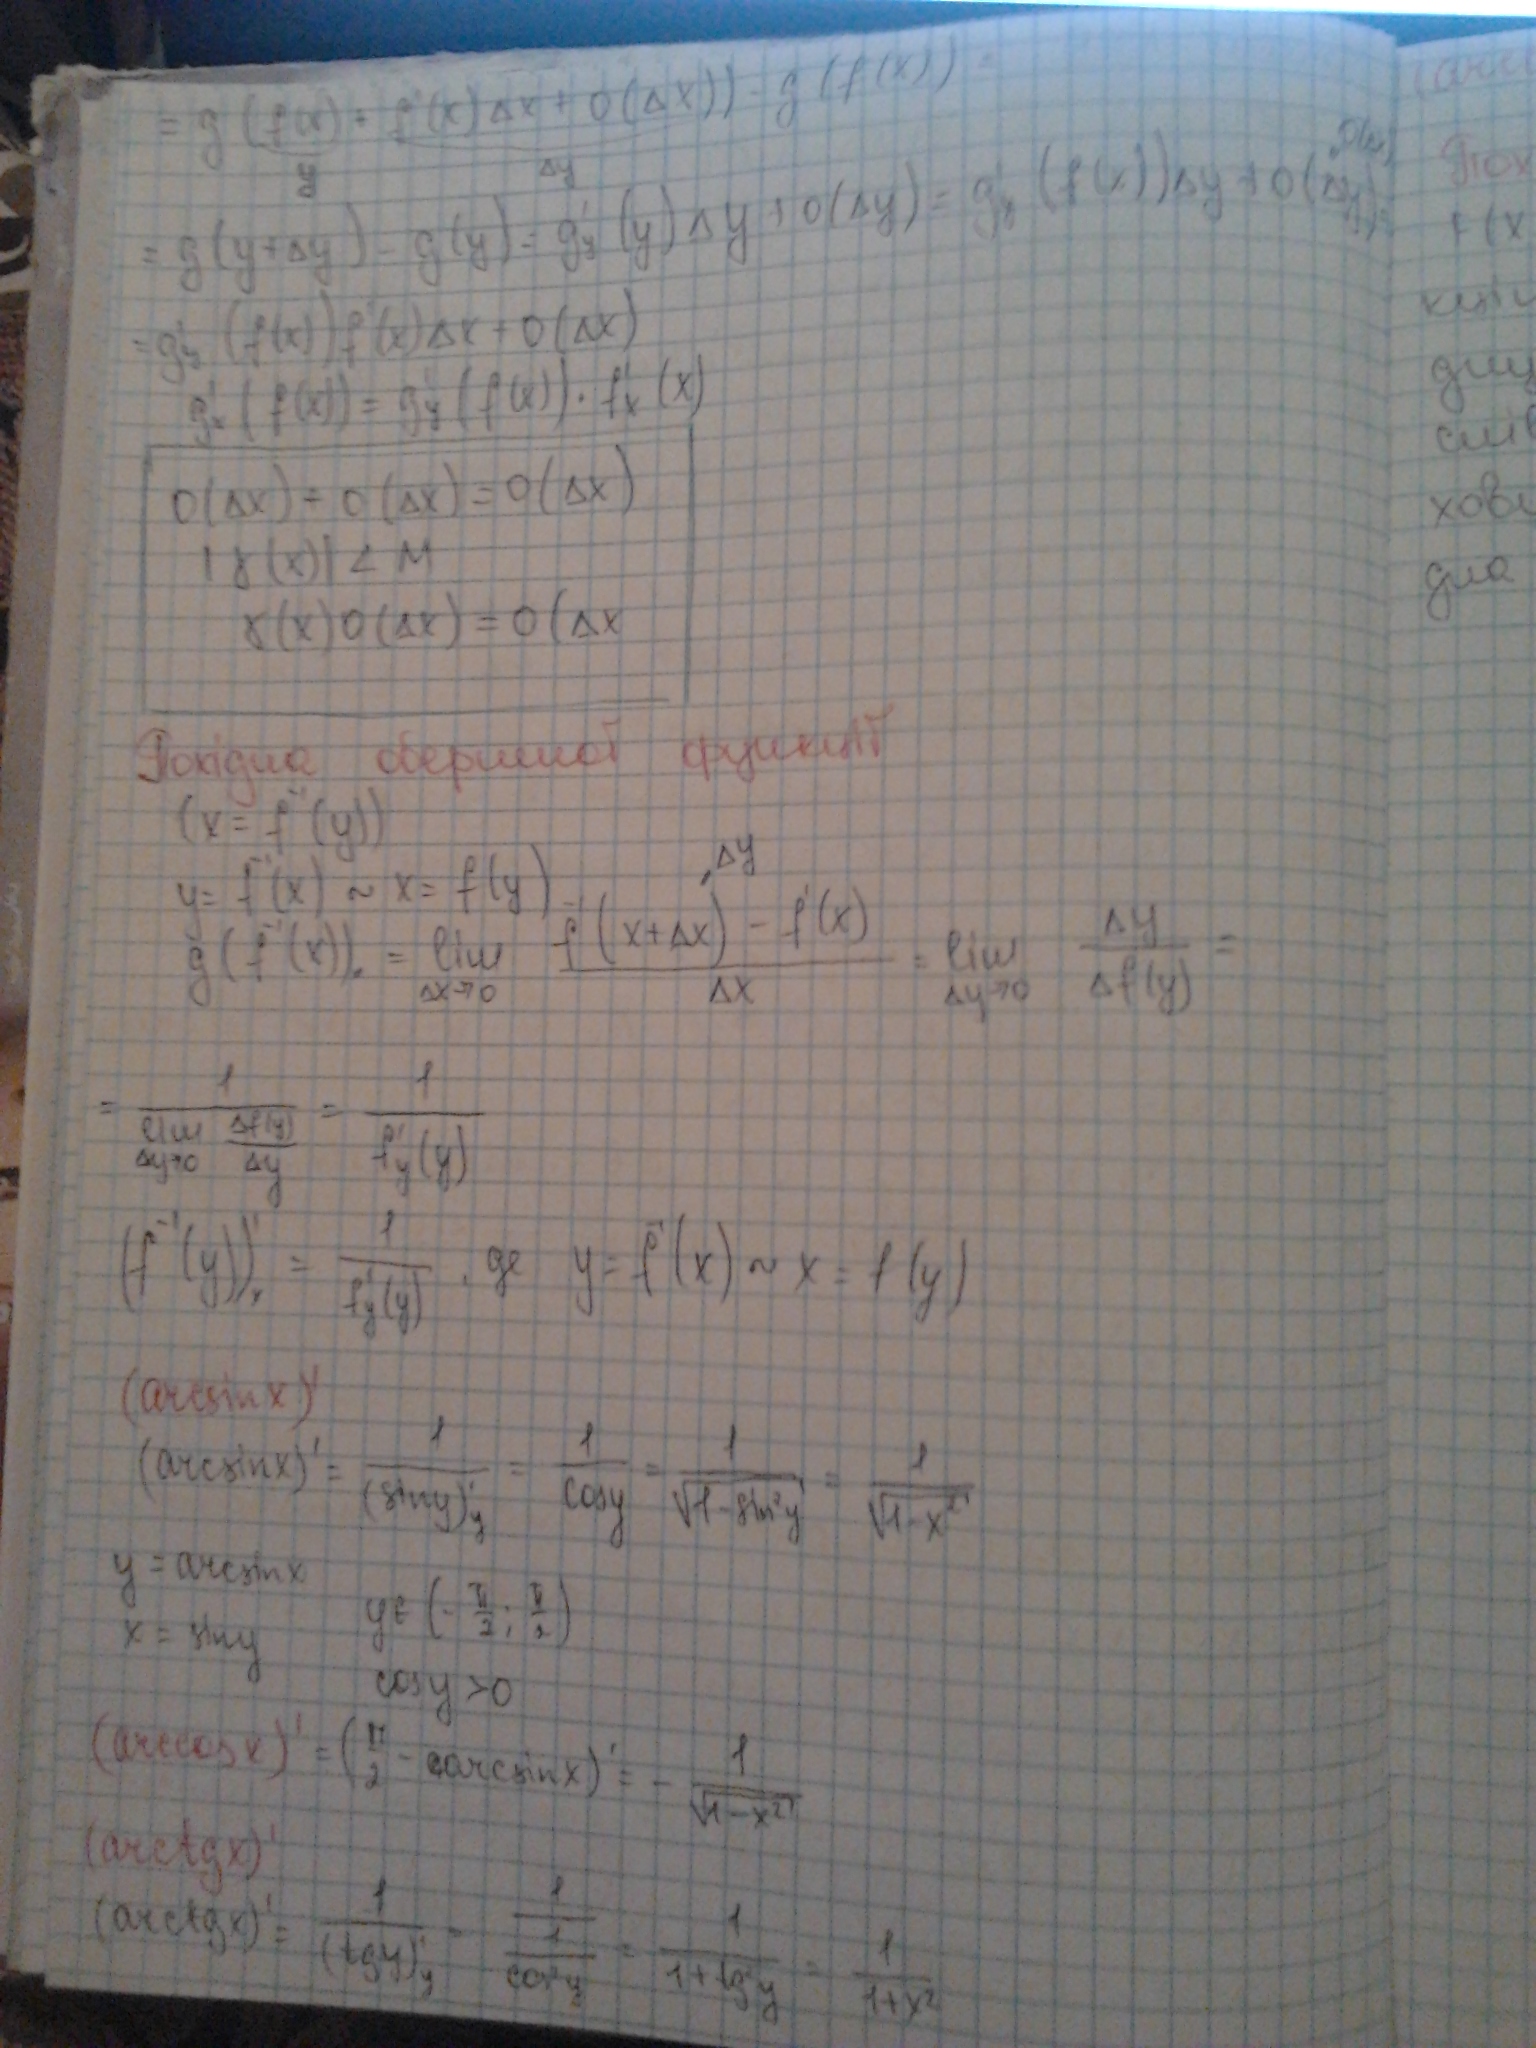 = g (f(x) + f'(x)Δx + O(Δx)) - g (f(x)) =
y Δy
= g(y+Δy) - g(y) = g'y (y) Δy + O(Δy) = g'y (f(x))Δy + O(Δy) =
= g'y (f(x)) f'(x)Δx + O(Δx)
g'x (f(x)) = g'y (f(x)) · f'x (x)
O(Δx) + O(Δx) = O(Δx)
|γ(x)| < M
γ(x)O(Δx) = O(Δx
Похідна оберненої функції
(x = f⁻¹(y))
y = f⁻¹(x) ~ x = f(y)
Δy
g(f⁻¹(x))x = lim Δx→0 (f⁻¹(x+Δx) - f⁻¹(x))/Δx = lim Δy→0 Δy/Δf(y) =
= 1/(lim Δy→0 Δf(y)/Δy) = 1/f'y(y)
(f⁻¹(y))'x = 1/f'y(y), де y = f⁻¹(x) ~ x = f(y)
(arcsinx)'
(arcsinx)' = 1/(siny)'y = 1/cosy = 1/√(1-sin²y) = 1/√(1-x²)
y = arcsinx
x = siny y∈(-π/2; π/2)
cosy >0
(arccosx)' = (π/2 - arcsinx)' = - 1/√(1-x²)
(arctgx)'
(arctgx)' = 1/(tgy)'y = 1/(1/cos²y) = 1/(1+tg²y) = 1/(1+x²)